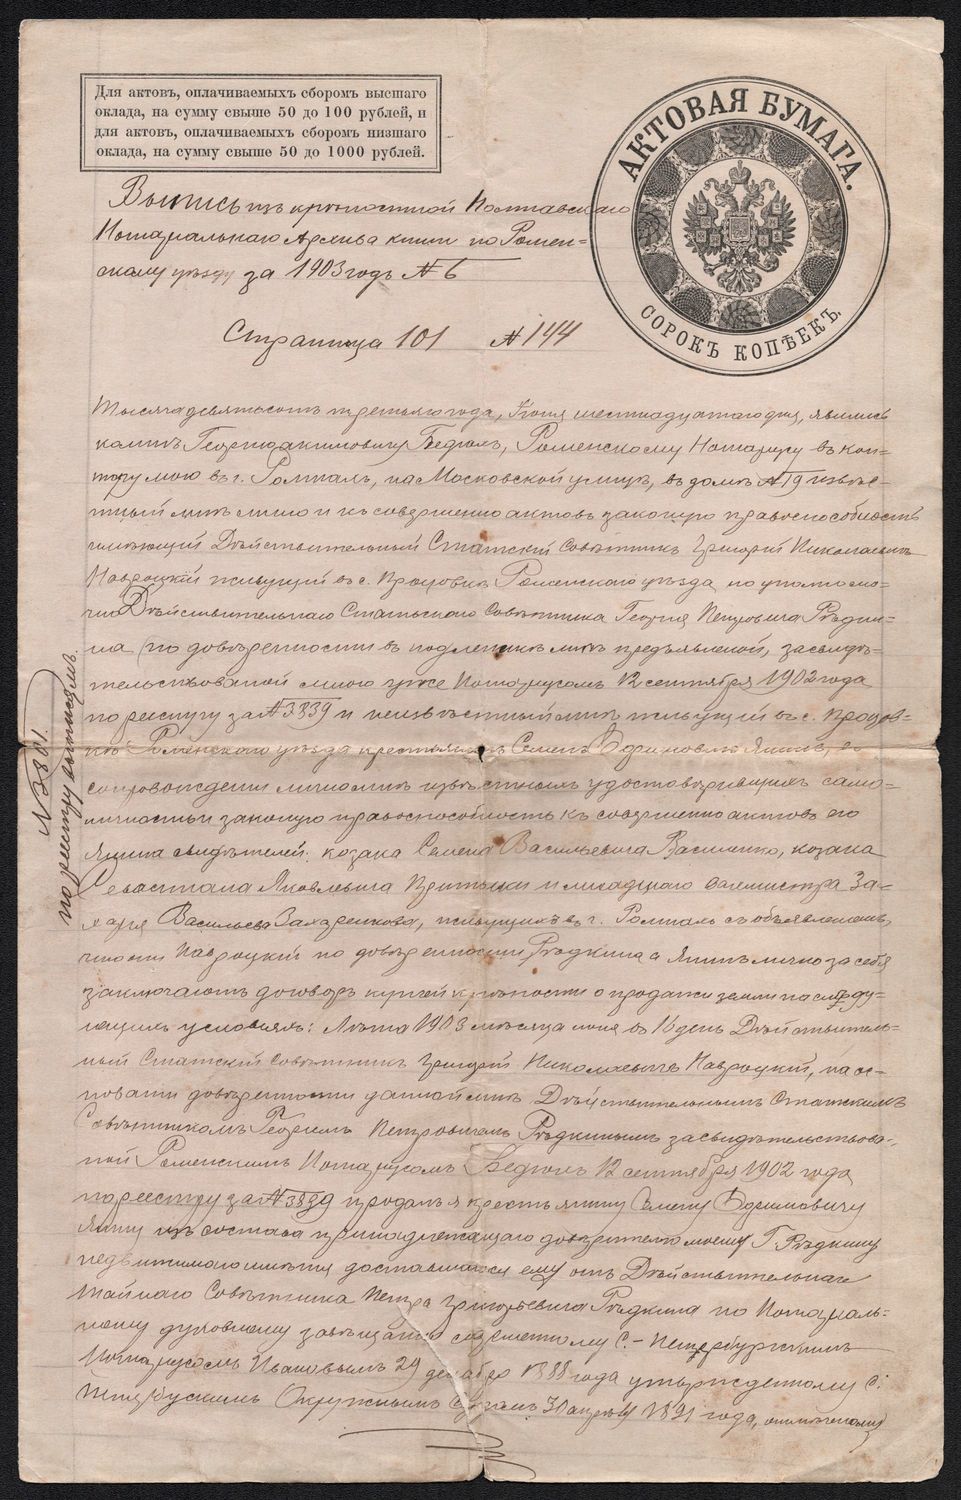 Для актовъ, оплачиваемыхъ сборомъ высшаго
оклада, на сумму свыше 50 до 100 рублей, и
для актовъ, оплачиваемыхъ сборомъ низшаго
оклада, на сумму свыше 50 до 1000 рублей.
АКТОВАЯ БУМАГА.
СОРОКЪ КОПѢЕКЪ.
Выпись изъ крѣпостной Полтавскаго
Нотаріальнаго Архива книги по Ромен-
скому уѣзду за 1903 годъ № 6
Страница 101 № 144
Тысяча девятьсотъ третьяго года, Іюня шестнадцатаго дня, явились
ко мнѣ Георгію Акимовичу Бедро, Роменскому Нотаріусу въ кон-
тору мою въ г. Ромнахъ, на Московской улицѣ, въ домѣ № 19 извѣс-
тный мнѣ лично и къ совершенію актовъ законную правоспособность
имѣющій Дѣйствительный Статскій Совѣтникъ Григорій Николаевичъ
Навроцкій живущій въ с. Роменскаго уѣзда, по уполномо-
чію Дѣйствительнаго Статскаго Совѣтника Георгія Петровича Рѣдки-
на (по довѣренности въ подлинникѣ мнѣ предъявленной, засвидѣ-
тельствованой мною же Нотаріусомъ 12 сентября 1902 года
по реестру за № 3839 и неизвѣстный мнѣ живущій въ с.
Роменскаго уѣзда крестьянинъ Семенъ Ефимовичъ въ
сопровожденіи лично мнѣ извѣстныхъ удостовѣрившихъ само-
личность и законную правоспособность къ совершенію актовъ его
свидѣтелей: козака Семена Васильевича Василенко, козака
Севастіана Яковлевича и младшаго За-
харія Васильева Захаренкова, живущихъ въ г. Ромнахъ съ объявленіемъ,
что они Навроцкій по довѣренности Рѣдкина а лично за себя
заключаютъ договоръ купчей крѣпости о продажѣ земли на слѣду-
ющихъ условіяхъ: Лѣта 1903 мѣсяца іюня въ 16 день Дѣйствитель-
ный Статскій Совѣтникъ Григорій Николаевичъ Навроцкій, на ос-
нованіи довѣренности данной мнѣ Дѣйствительнымъ Статскимъ
Совѣтникомъ Георгіемъ Петровичемъ Рѣдкинымъ засвидѣтельствова-
ной Роменскимъ Нотаріусомъ Бедро 12 сентября 1902 года
по реестру за № 3839 продалъ я крестьянину Семену Ефимовичу
изъ состава принадлежащаго довѣрителю моему Г. Рѣдкину
недвижимаго имѣнія доставшагося ему отъ Дѣйствительнаго
Тайнаго Совѣтника Петра Григорьевича Рѣдкина по Нотаріаль-
ному духовному завѣщанію совершенному С.-Петербургскимъ
Нотаріусомъ Ивановымъ 29 декабря 1888 года утвержденному С.
Петербускимъ Окружнымъ Судомъ 30 апрѣля 1891 года,
№ 3801.
по реестру выписямъ.